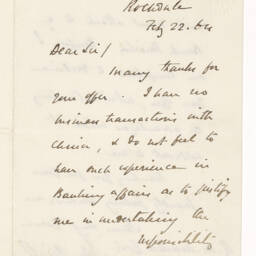 Rochdale
Feby 22. 64
Dear Sir/
Many thanks for
your offer. I have no
business transactions with
China, & do not feel to
have such experience in
Banking affairs as to justify
me in undertaking the
responsibility